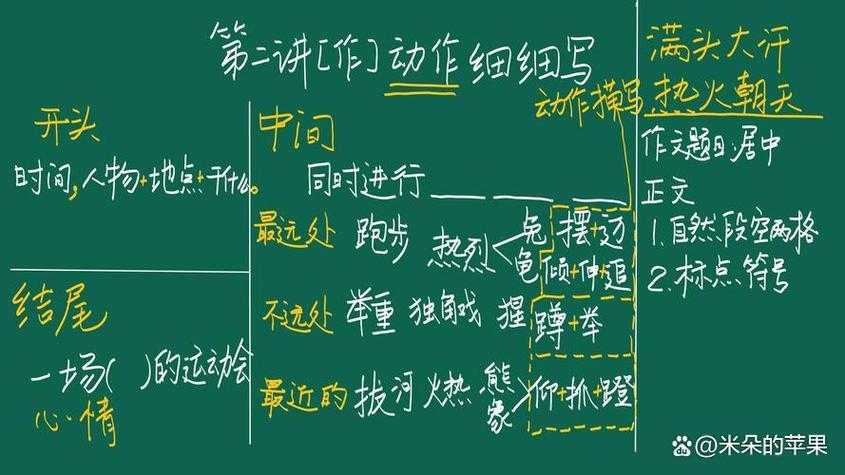 第二讲[作]动作细细写
开头
时间,人物+地点+干什么。
结尾
一场( )的运动会
心情
中间
动作描写
同时进行
最远处 跑步 热烈 兔 摆+迈
龟 倾+伸+追
不远处 举重 独角戏 猩 蹲+举
最近的 拔河 火热 熊 象 仰+抓+蹬
满头大汗
热火朝天
作文题目:居中
正文
1.自然段空两格
2.标点符号
@米朵的苹果